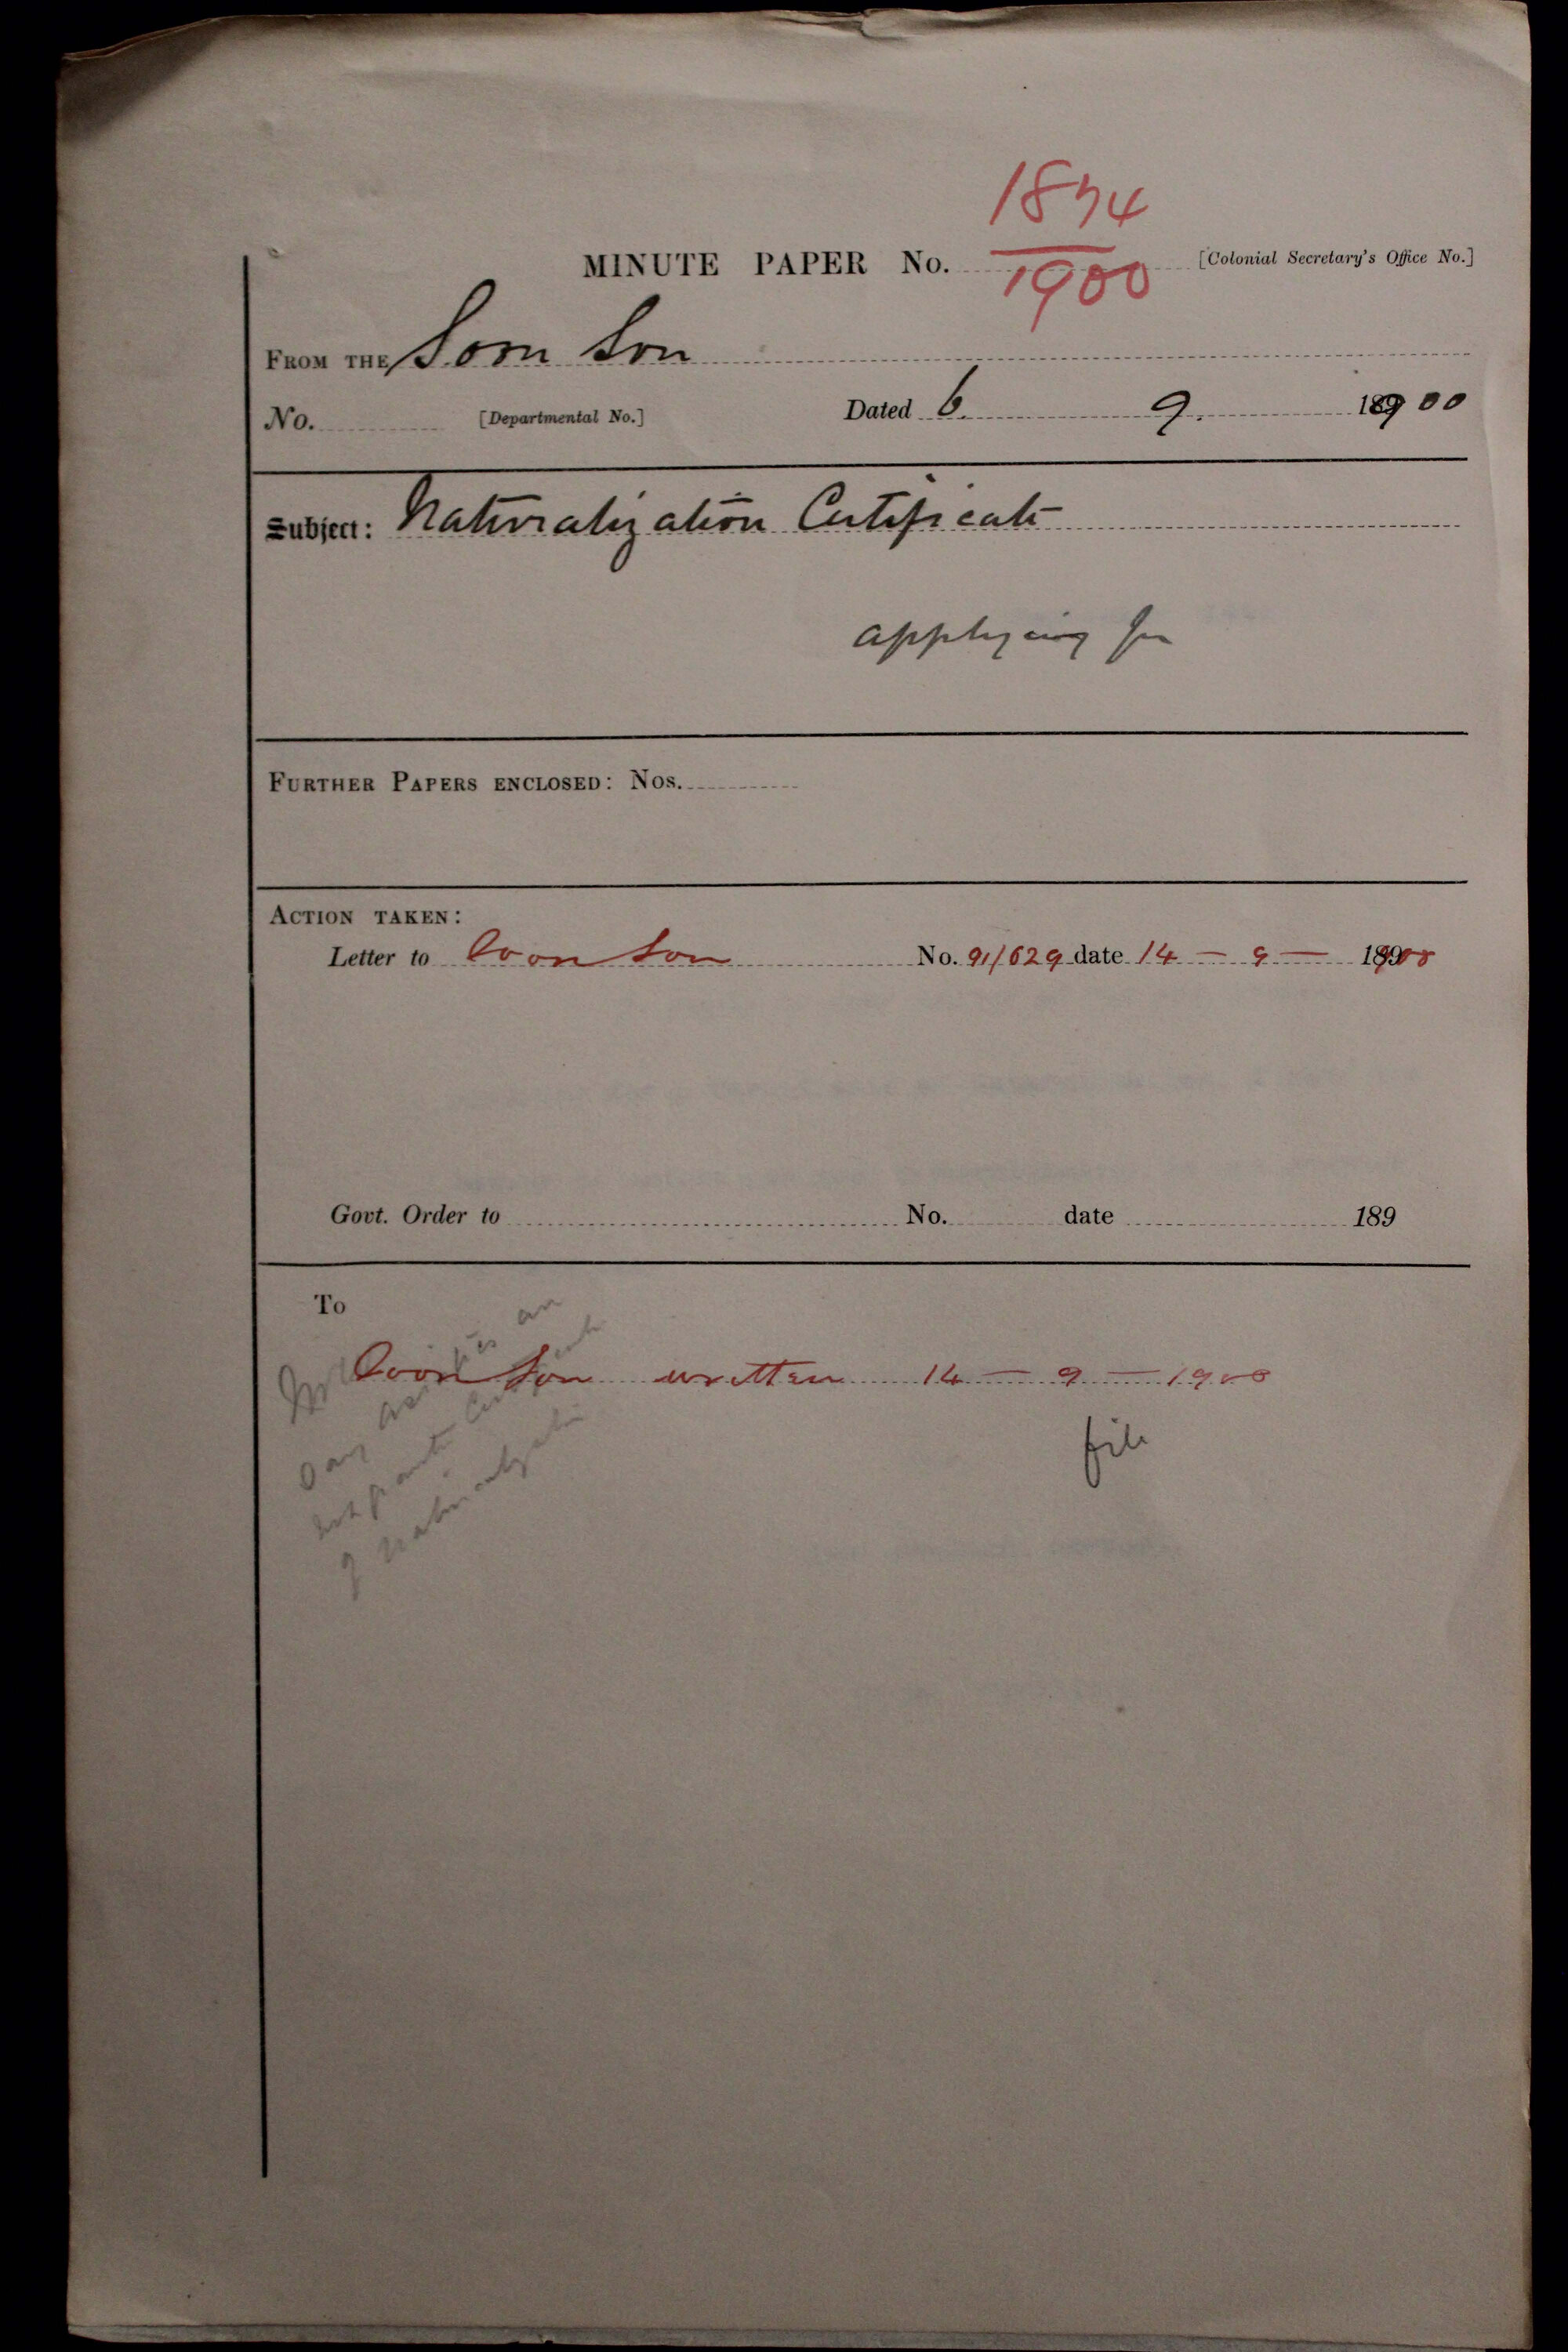 1874
MINUTE PAPER No. 1900 [Colonial Secretary's Office No.]
FROM THE Sorn Son
No. [Departmental No.] Dated 6. 9. 1900
Subject: Naturalization Certificate
applying for
FURTHER PAPERS ENCLOSED: Nos.
ACTION TAKEN:
Letter to Coon Son No. 91/629 date 14 – 9 – 1900
Govt. Order to No. date 189
To
Coon Son written 14 – 9 – 1900
file
Say Asiatics are
not granted Certificate
of Naturalization